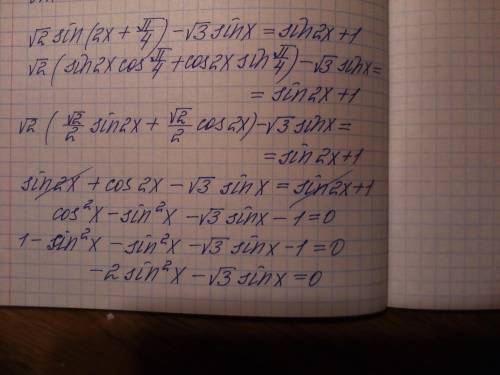 √2 sin(2x + π/4) - √3 sinx = sin2x+1
√2 (sin2x cos π/4 + cos2x sin π/4) - √3 sinx =
= sin2x+1
√2 ( √2/2 sin2x + √2/2 cos2x) - √3 sinx =
= sin2x+1
sin2x + cos2x - √3 sinx = sin2x+1
cos²x - sin²x - √3 sinx - 1 = 0
1 - sin²x - sin²x - √3 sinx - 1 = 0
-2sin²x - √3 sinx = 0